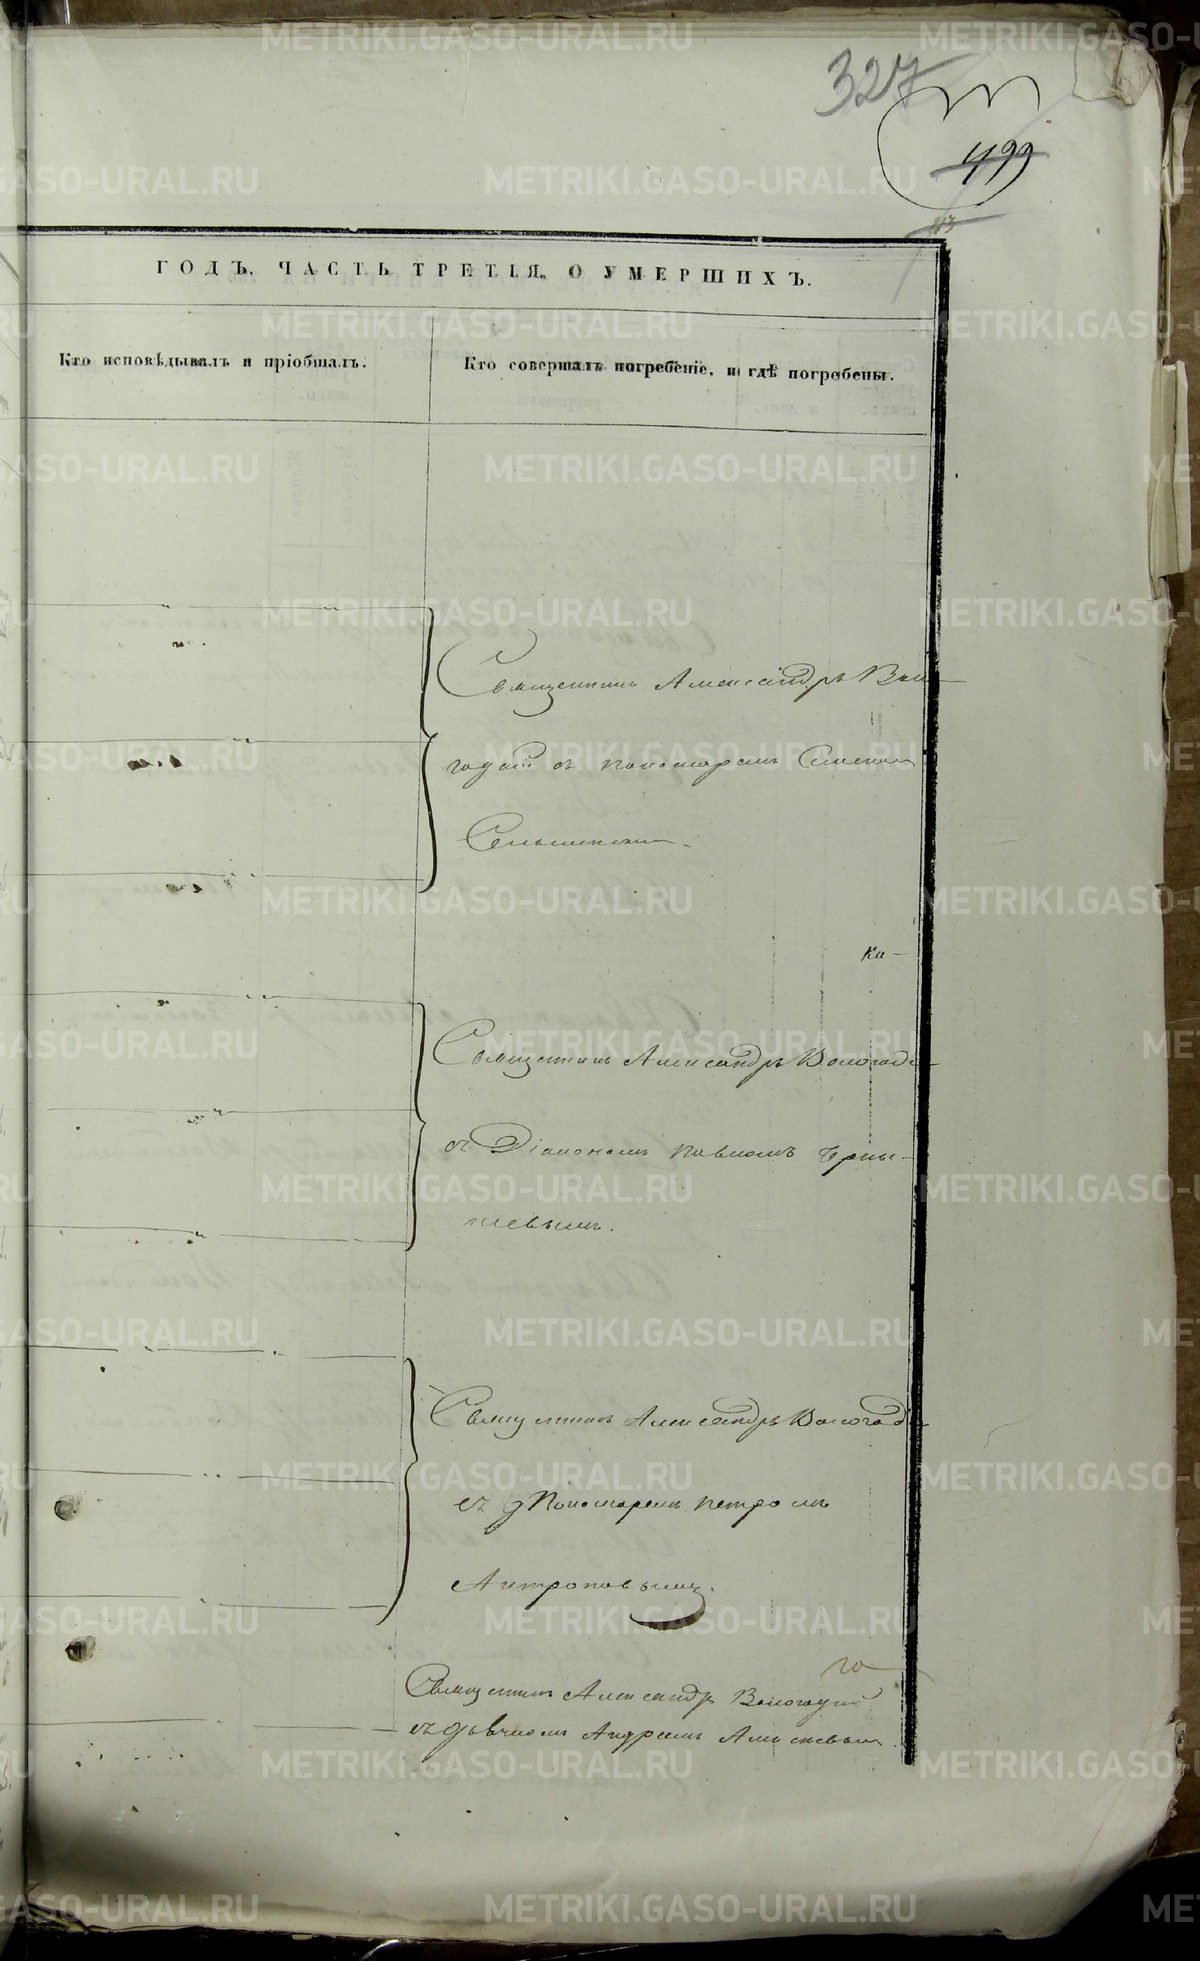 327
499
ГОДЪ, ЧАСТЬ ТРЕТІЯ, О УМЕРШИХЪ.
Кто исповѣдывалъ и пріобщалъ.
Кто совершалъ погребеніе, и гдѣ погребены.
Священникъ Александръ Воло-
годскій съ пономаремъ
Ка-
Священникъ Александръ Вологодс-
съ Діакономъ Павломъ Черны-
шевымъ.
Священникъ Александръ Вологод-
съ Пономаремъ Петромъ
Антроповымъ.
Священникъ Александръ Вологодскій
съ дьячкомъ Андреемъ
METRIKI.GASO-URAL.RU